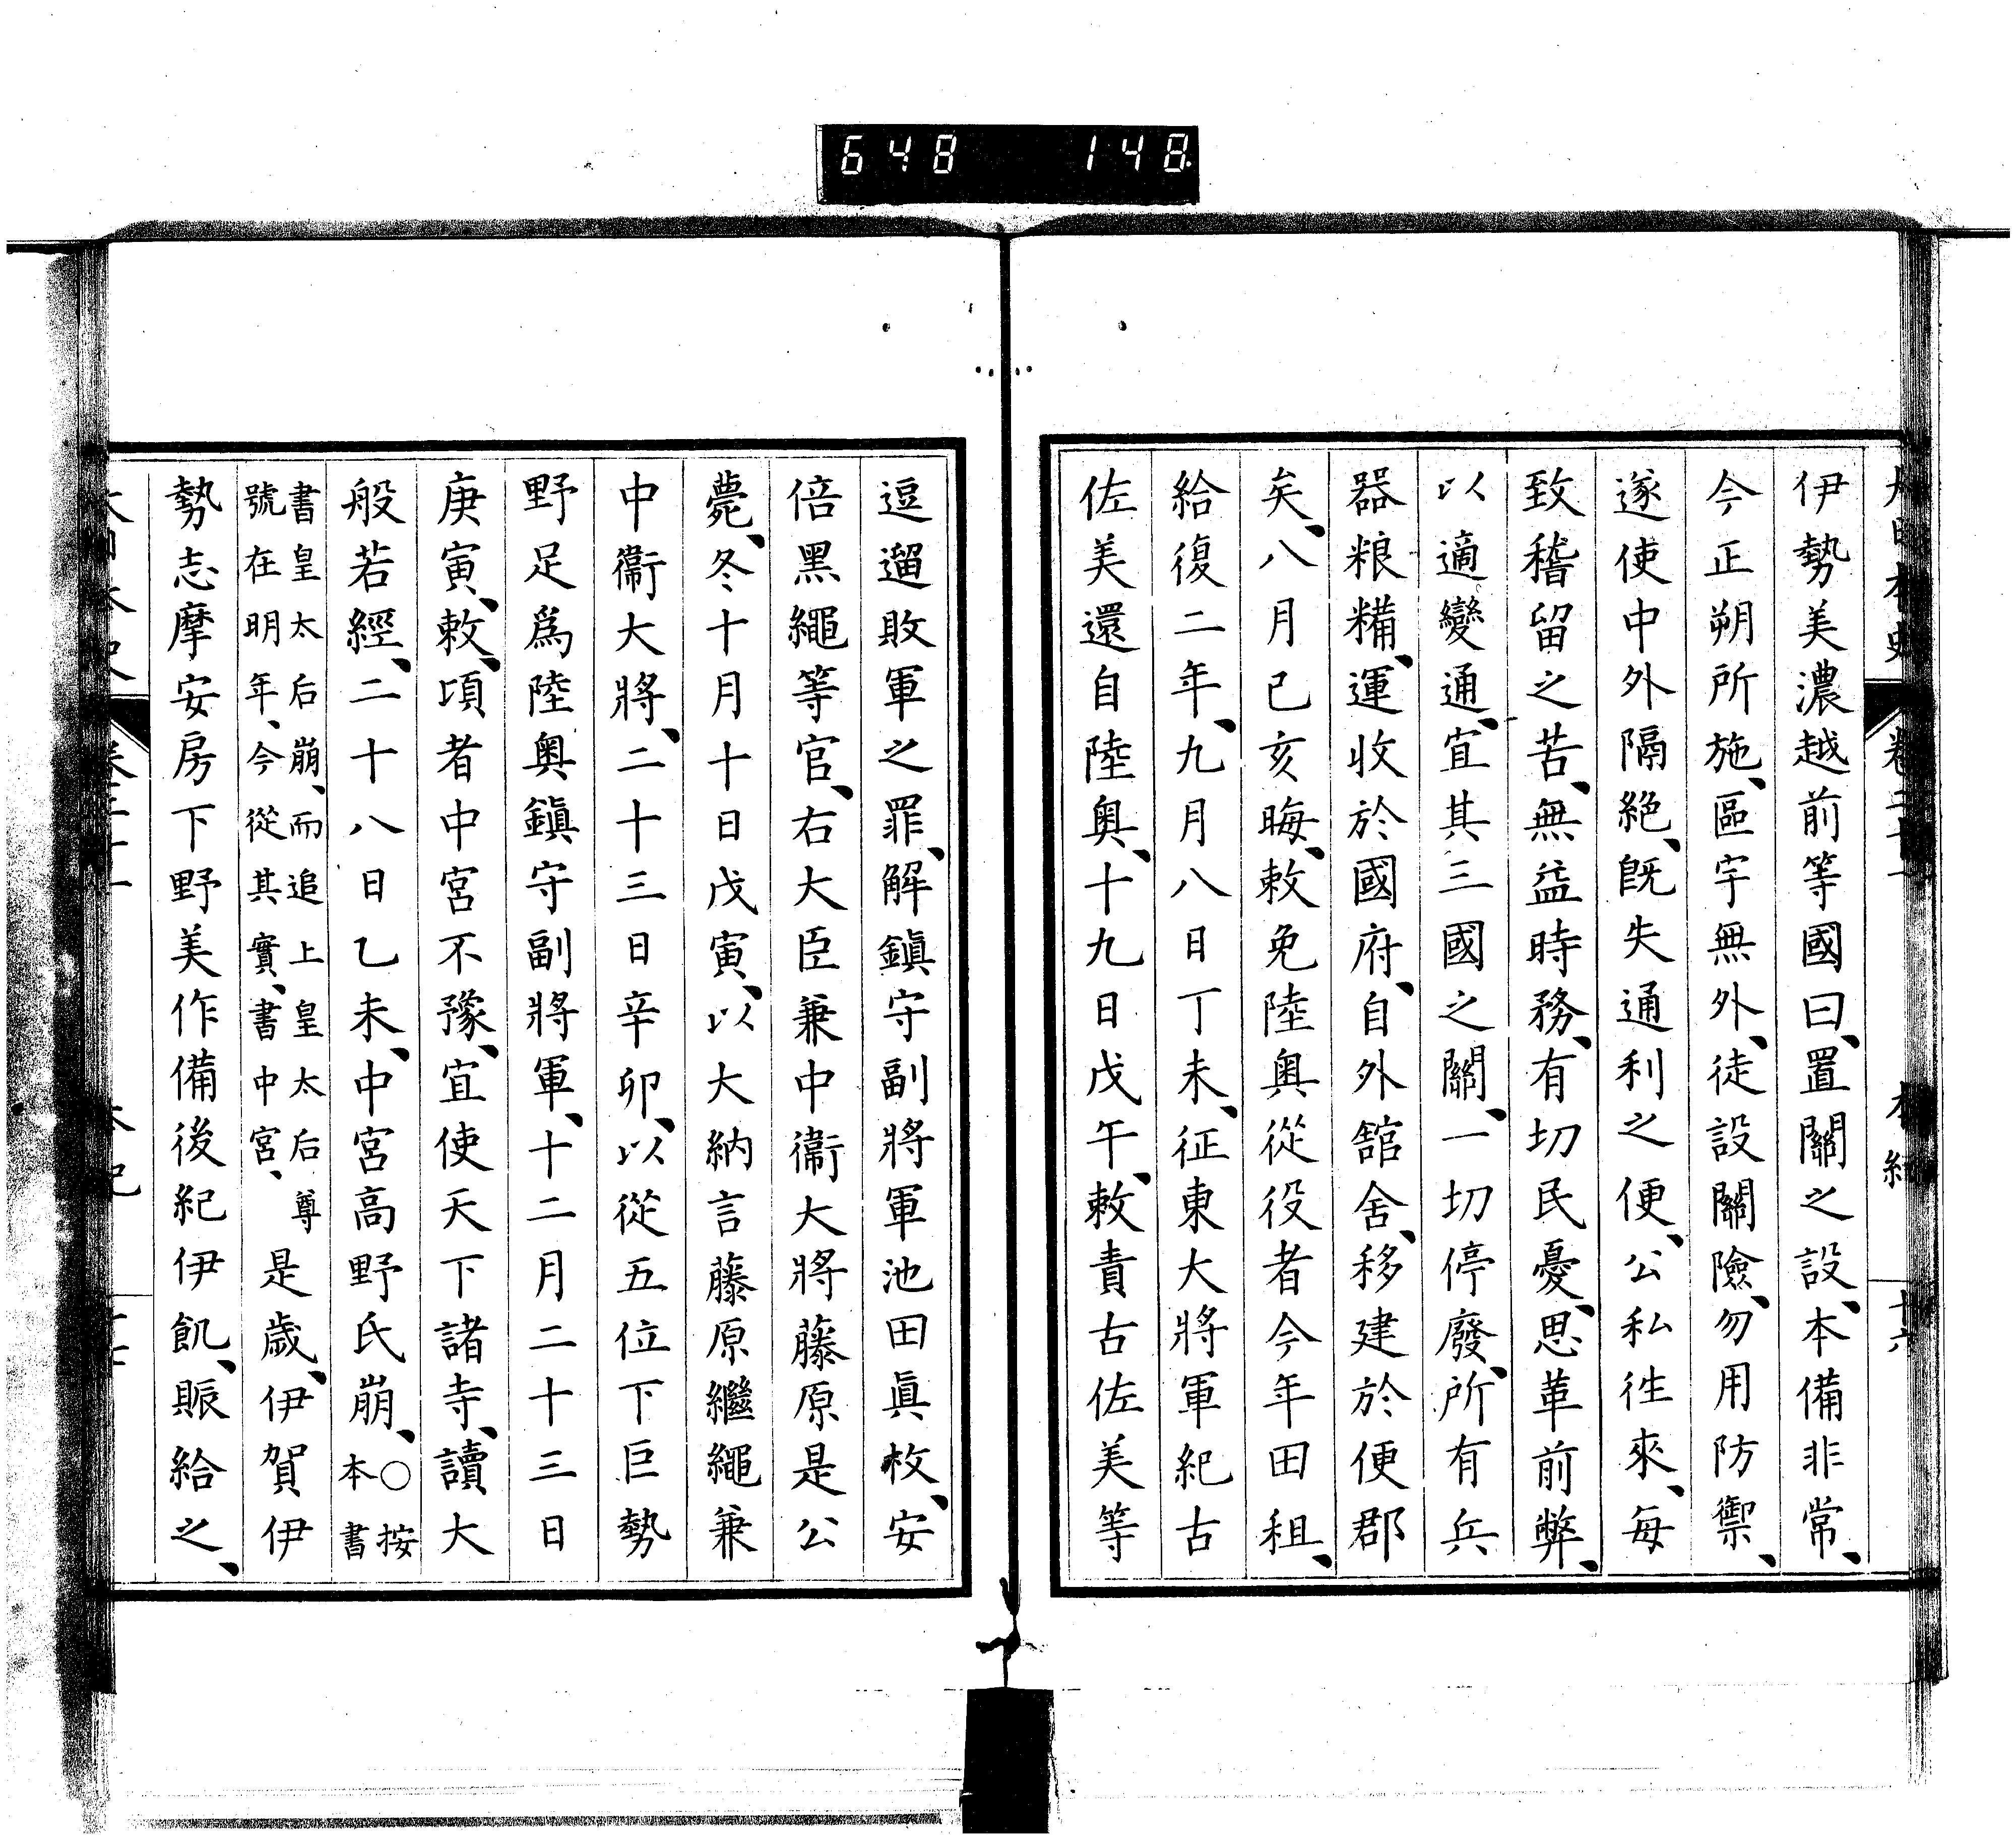 648 148
大日本史 卷二十一 本紀 十六
伊勢美濃越前等國曰、置關之設、本備非常、
今正朔所施、區宇無外、徒設關險、勿用防禦、
遂使中外隔絕、既失通利之便、公私往來、每
致稽留之苦、無益時務、有切民憂、思革前弊、
以適變通、宜其三國之關、一切停廢、所有兵
器粮糒、運收於國府、自外舘舍、移建於便郡
矣、八月己亥晦、敕免陸奧從役者今年田租、
給復二年、九月八日丁未、征東大將軍紀古
佐美還自陸奧、十九日戊午、敕責古佐美等
逗遛敗軍之罪、解鎭守副將軍池田眞枚、安
倍黑繩等官、右大臣兼中衞大將藤原是公
薨、冬十月十日戊寅、以大納言藤原繼繩兼
中衞大將、二十三日辛卯、以從五位下巨勢
野足爲陸奧鎭守副將軍、十二月二十三日
庚寅、敕、頃者中宮不豫、宜使天下諸寺、讀大
般若經、二十八日乙未、中宮高野氏崩、○按本書
書皇太后崩、而追上皇太后尊號在明年、今從其實、書中宮、是歲、伊賀伊
勢志摩安房下野美作備後紀伊飢、賑給之、
大日本史 卷二十一 本紀